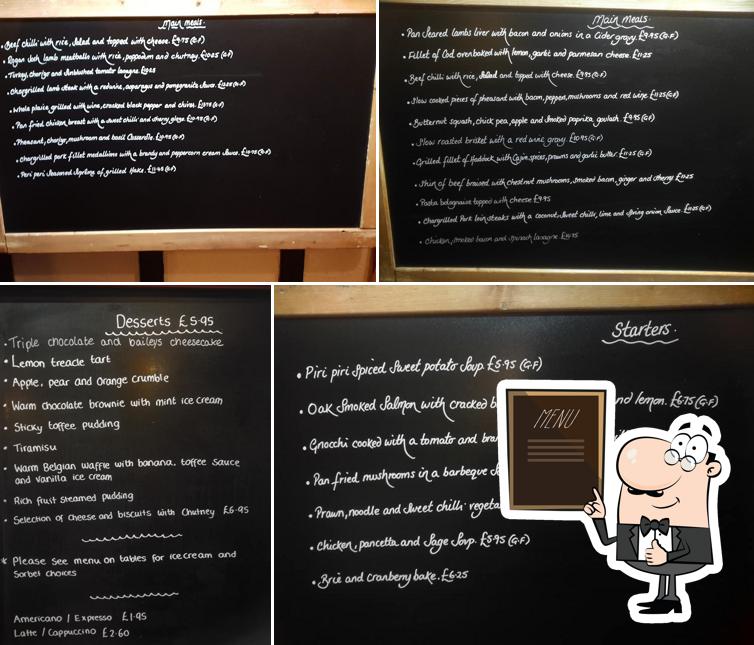 Main meals
Beef chilli with rice, Salad and topped with cheese. £9.75 (G.F)
Rogan Josh lamb meatballs with rice, poppadom and chutney. £10.25 (G.F)
Turkey, chorizo and Sunblushed tomato lasagne.
Chargrilled lamb steak with a redwine, asparagus and pomegranate Sauce.
Whole plaice, grilled with wine, cracked black pepper and chives.
Pan fried chicken breast with a Sweet chilli and Sherry glaze.
Pheasant, chorizo, mushroom and basil Casserole.
Chargrilled pork fillet medallions with a brandy and peppercorn cream Sauce.
Peri peri Seasoned Sirloin of grilled Hake. £11.95 (G.F)
Main Meals.
Pan Seared lambs liver with bacon and onions in a Cider gravy. £9.95 (G.F)
Fillet of Cod oven baked with lemon, garlic and parmesan cheese. £11.25
Beef chilli with rice, Salad and topped with cheese. £9.95 (G.F)
Slow cooked pieces of pheasant with bacon, peppers, mushrooms and red wine. £11.25 (G.F)
Butternut Squash, chick pea, apple and Smoked paprika goulash. £9.95 (G.F)
Slow roasted brisket with a red wine gravy. £10.95 (G.F)
Grilled fillet of Haddock with Cajun spices, prawns and garlic butter. £11.25 (G.F)
Shin of beef braised with chestnut mushrooms, Smoked bacon, ginger and Sherry. £11.25
Pasta bolognaise topped with cheese £9.95
Chargrilled Pork loin steaks with a coconut, Sweet chilli, lime and Spring onion Sauce. £11.25 (G.F)
Chicken, Smoked bacon and Spinach lasagne
Desserts £5.95
Triple chocolate and baileys cheesecake
Lemon treacle tart
Apple, pear and Orange crumble
Warm chocolate brownie with mint ice cream
Sticky toffee pudding
Tiramisu
Warm Belgian Waffle with banana, toffee Sauce
and Vanilla ice cream
Rich fruit Steamed pudding
Selection of Cheese and biscuits with Chutney £6.95
* Please See menu on tables for ice cream and
Sorbet choices
Americano / Expresso £1.95
Latte / Cappuccino £2.60
Starters.
Piri piri Spiced Sweet potato Soup. £5.95 (G.F)
Oak Smoked Salmon with cracked b nd lemon. £6.75 (G.F)
Gnocchi cooked with a tomato and
Pan fried mushrooms in a barbeque S
Prawn, noodle and Sweet chilli vegeta
Chicken, pancetta and Sage Soup. £5.95 (G.F)
Brie and Cranberry bake. £6.25
MENU